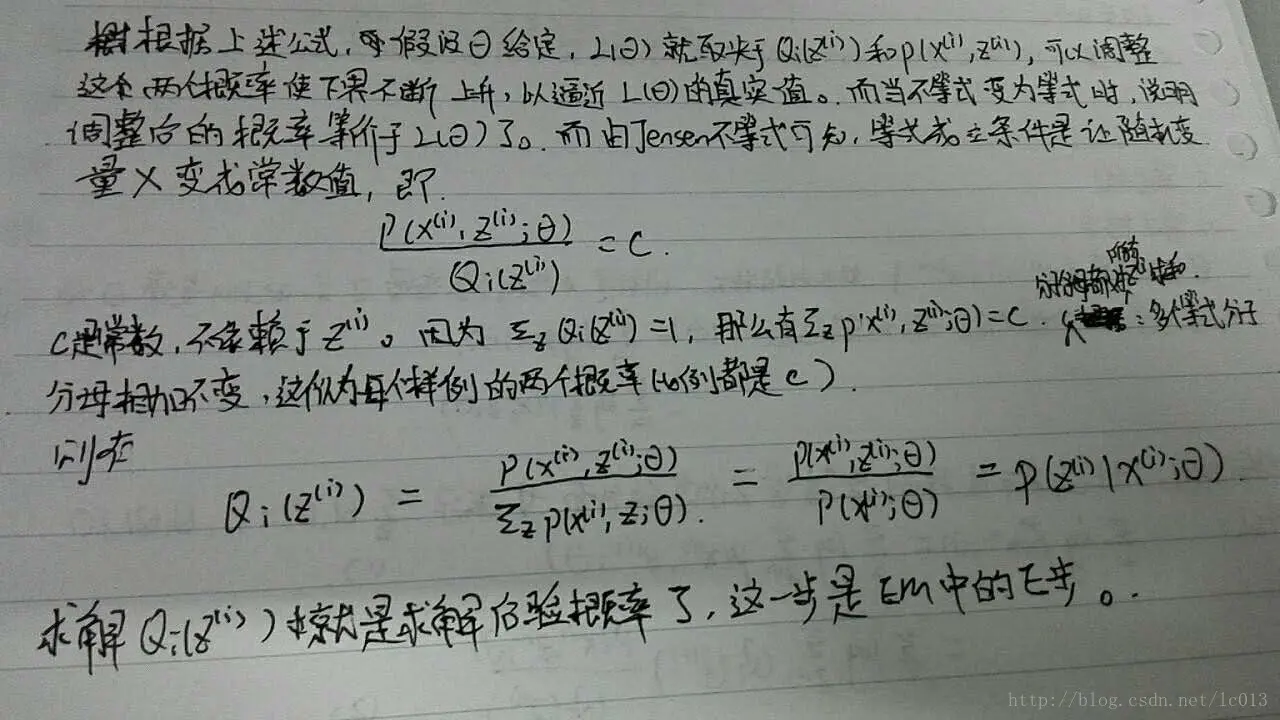 根据上述公式,假设θ给定,L(θ)就取决于Qi(z⁽ⁱ⁾)和p(x⁽ⁱ⁾,z⁽ⁱ⁾),可以调整
这个两个概率使下界不断上升,以逼近L(θ)的真实值。而当不等式变为等式时,说明
调整后的概率等价于L(θ)了。而由Jensen不等式可知,等式成立条件是让随机变
量X变成常数值,即
P(x⁽ⁱ⁾,z⁽ⁱ⁾;θ) / Qi(z⁽ⁱ⁾) = C.
C是常数,不依赖于z⁽ⁱ⁾。因为 Σz Qi(z⁽ⁱ⁾)=1,那么有Σz p(x⁽ⁱ⁾,z⁽ⁱ⁾;θ)=C. 多个等式分子
分母相加不变,这个认为每个样例的两个概率比例都是c).
则有
Qi(z⁽ⁱ⁾) = P(x⁽ⁱ⁾,z⁽ⁱ⁾;θ) / Σz p(x⁽ⁱ⁾,z;θ). = p(x⁽ⁱ⁾,z⁽ⁱ⁾;θ) / P(x⁽ⁱ⁾;θ) = p(z⁽ⁱ⁾|x⁽ⁱ⁾;θ).
求解Qi(z⁽ⁱ⁾)就是求解后验概率了,这一步是EM中的E步。
http://blog.csdn.net/lc013